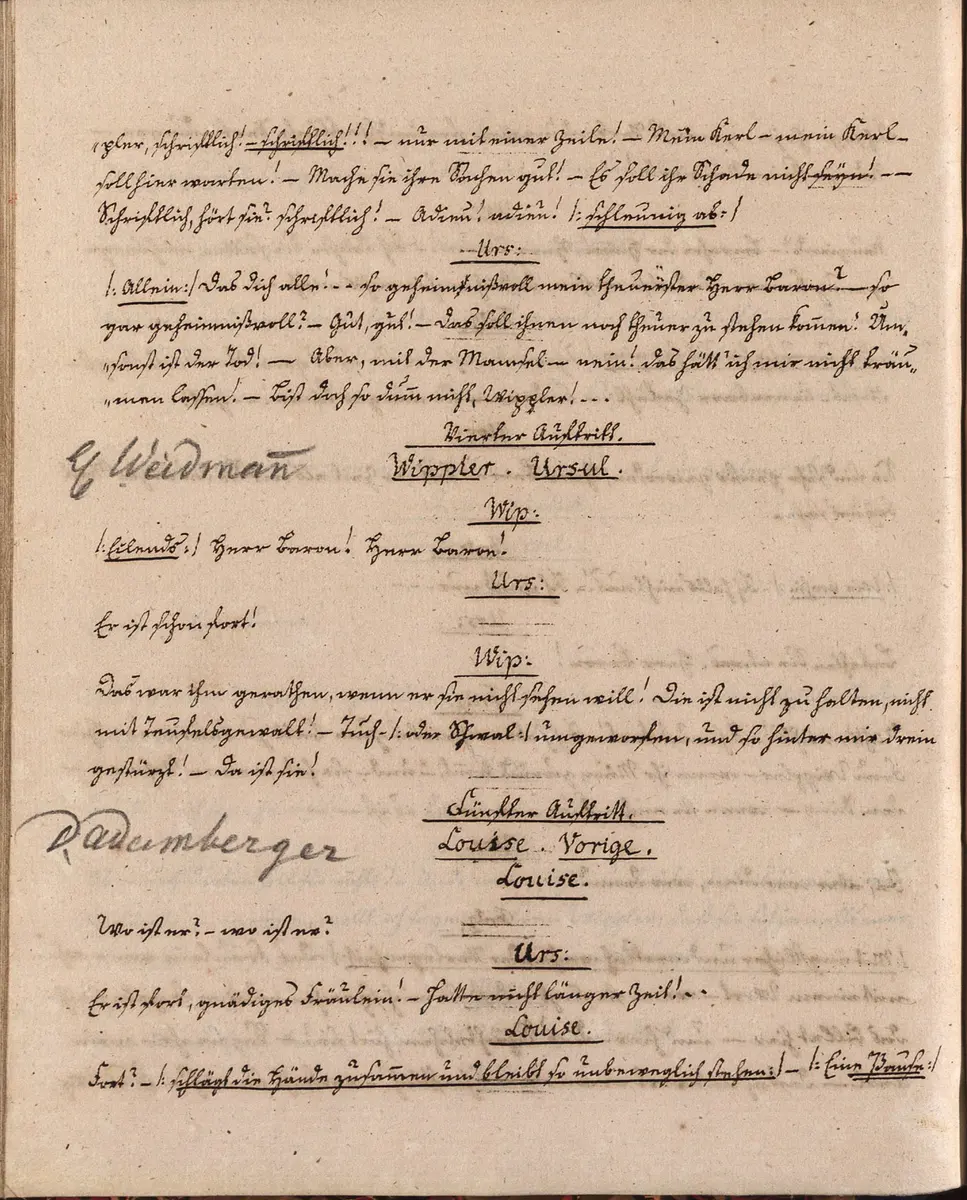 „pler, schriftlich! – schriftlich!!! – nur mit einer Zeile! – Mein Kerl – mein Kerl –
soll hier warten! – Mache sie ihre Sachen gut! – Es soll ihr Schade nicht seyn! – –
Schriftlich, hört sie? schriftlich! – Adieu! adieu! /: schleunig ab :/
Urs:
/: Allein :/ Das dich alle! - - so geheimnißvoll mein theuerster Herr Baron? – so
gar geheimnißvoll? – Gut, gut! – das soll ihnen noch theuer zu stehen kommen! Um„
„sonst ist der Tod! – Aber, mit der Mamsel – nein! das hätt' ich mir nicht träu„
„men lassen! – bist doch so dumm nicht, Wippler! - - -
Vierter Auftritt.
E Weidmañ
Wippler. Ursul.
Wip:
/: Eilends :/ Herr Baron! Herr Baron!
Urs:
Er ist schon fort!
Wip:
Das war ihm gerathen, wenn er sie nicht sehen will! Die ist nicht zu halten, nicht
mit Teufelsgewalt! – Tuch – /: oder Schwal :/ umgeworfen, und so hinter mir drein
gestürzt! – Da ist sie!
Fünfter Auftritt.
Dadumberger
Louise. Vorige.
Louise.
Wo ist er? – wo ist er?
Urs:
Er ist fort, gnädiges Fräulein! – hatte nicht länger Zeit! - -
Louise.
Fort? – /: schlägt die Hände zusammen und bleibt so unbeweglich stehen :/ – /: Eine Pause :/